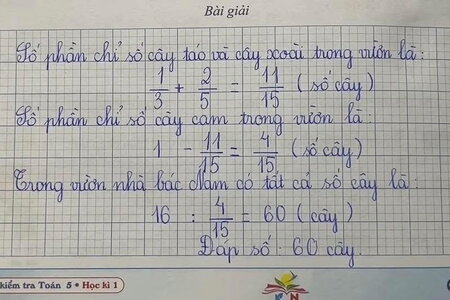 Bài giải
Số phần chỉ số cây táo và cây xoài trong vườn là:
1/3 + 2/5 = 11/15 (số cây)
Số phần chỉ số cây cam trong vườn là:
1 - 11/15 = 4/15 (số cây)
Trong vườn nhà bác Năm có tất cả số cây là:
16 : 4/15 = 60 (cây)
Đáp số: 60 cây.
kiểm tra Toán 5 • Học kì 1